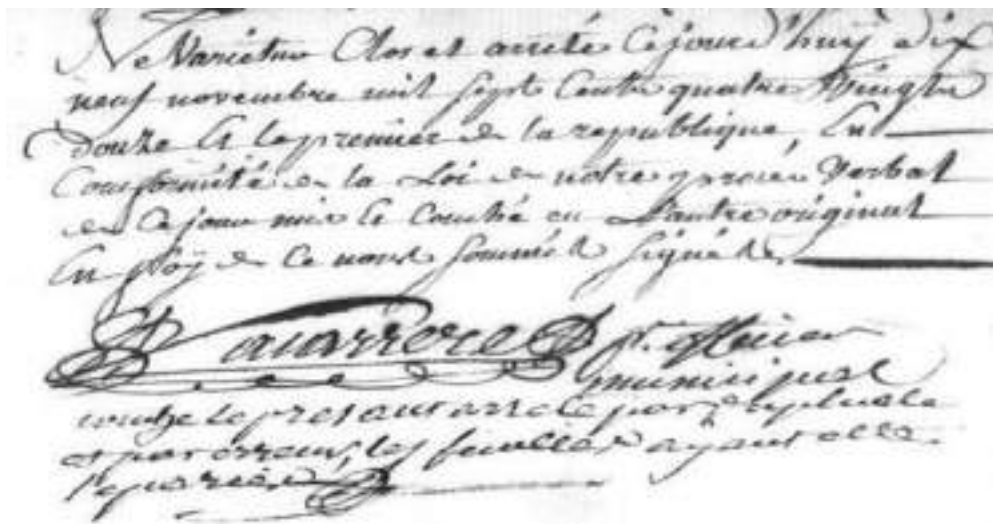 Ne Varietur Clos et arreté Cejourd'huy dix
neuf novembre mil sept Cents quatre Vingts
douze et le premier de la republique, En
Conformité de la Loi de notre procès Verbal
de Ce jour mis et Couché en L'autre original
En foy de Ce nous sommes signés
Lavarrere p.r officier
municipal
le present arreté par
et par erreur, les feuilles ayant